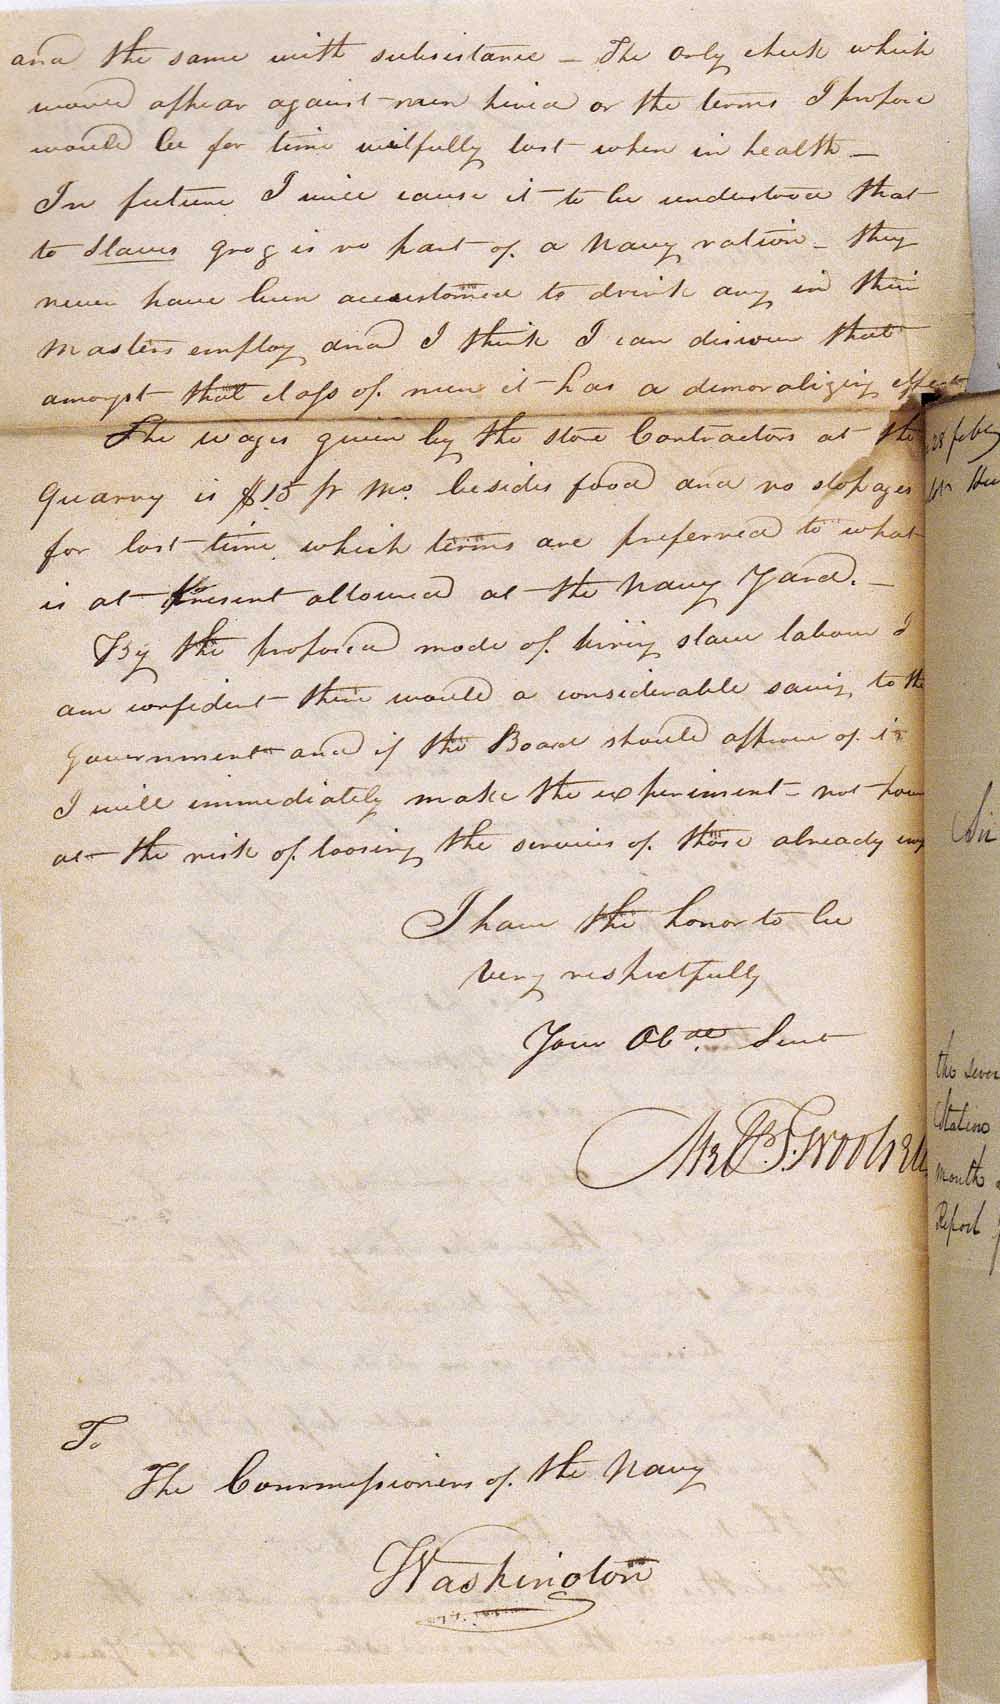 and the same with subsistance – The only check which
would appear against men hired on the terms I propose
would be for time wilfully lost when in health –
In future I will cause it to be understood that
to Slaves grog is no part of a Navy ration – they
never have been accustomed to drink any in their
Masters employ and I think I can discover that
amongst that class of men it has a demoralizing effect
The wages given by the stone Contractors at the
Quarry is $15 pr Mo. besides food and no stopages
for lost time which terms are preferred to what
is at present allowed at the Navy Yard. –
By the proposed mode of hiring slave labour I
am confident there would a considerable saving to the
Government and if the Board should approve of it
I will immediately make the experiment – not
at the risk of loosing the services of those already
I have the honor to be
very respectfully
Your Obdt Servt
M. T. Woolsey
To
The Commissioners of the Navy
Washington
28 feby
Sir
the
Station
month
Report